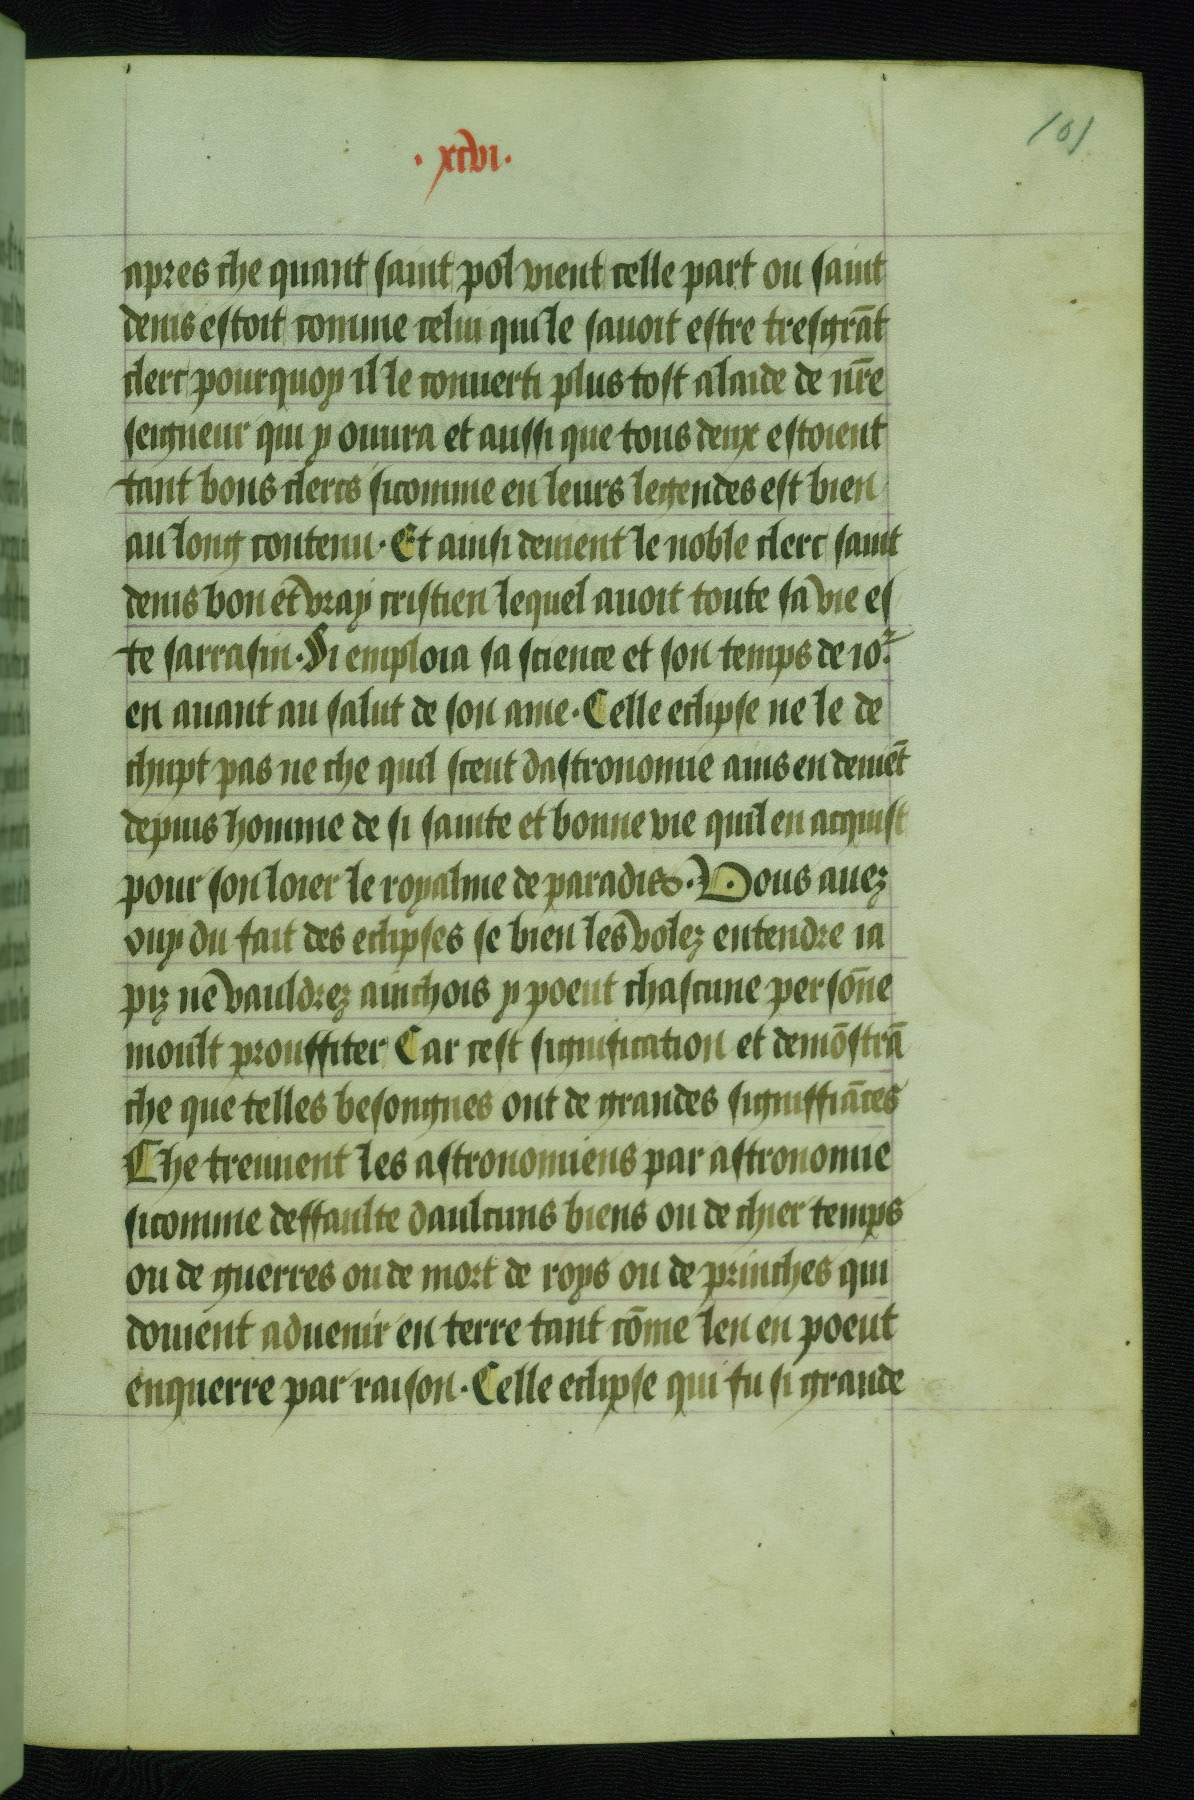 · xcvi ·
101
apres che quant saint pol vient celle part ou saint
denis estoit comme celui qui le sauoit estre tresgrāt
clerc pourquoy il le conuerti plus tost a laide de nr̄e
seigneur qui y ouura et aussi que tous deux estoient
tant bons clercs sicomme en leurs legendes est bien
au long contenu · Et ainsi deuient le noble clerc saint
denis bon et vray cristien lequel auoit toute sa vie es
te sarrasin · Si emploia sa science et son temps de io.ʳ
en auant au salut de son ame · Celle eclipse ne le de
chupt pas ne che quil sceut dastronomie ains en deuiēt
depuis homme de si sainte et bonne vie quil en acquist
pour son loier le royalme de paradis · Vous auez
ouy du fait des eclipses se bien les volez entendre ia
piz ne vauldrez ainchois y poeut chascune persōne
moult prouffiter Car cest signification et demōstrā
che que telles besongnes ont de grandes signiffiāces
Che treuuent les astronomiens par astronomie
sicomme deffaulte daulcuns biens ou de chier temps
ou de guerres ou de mort de roys ou de prinches qui
doiuent aduenir en terre tant cōme len en poeut
enquerre par raison · Celle eclipse qui fu si grande